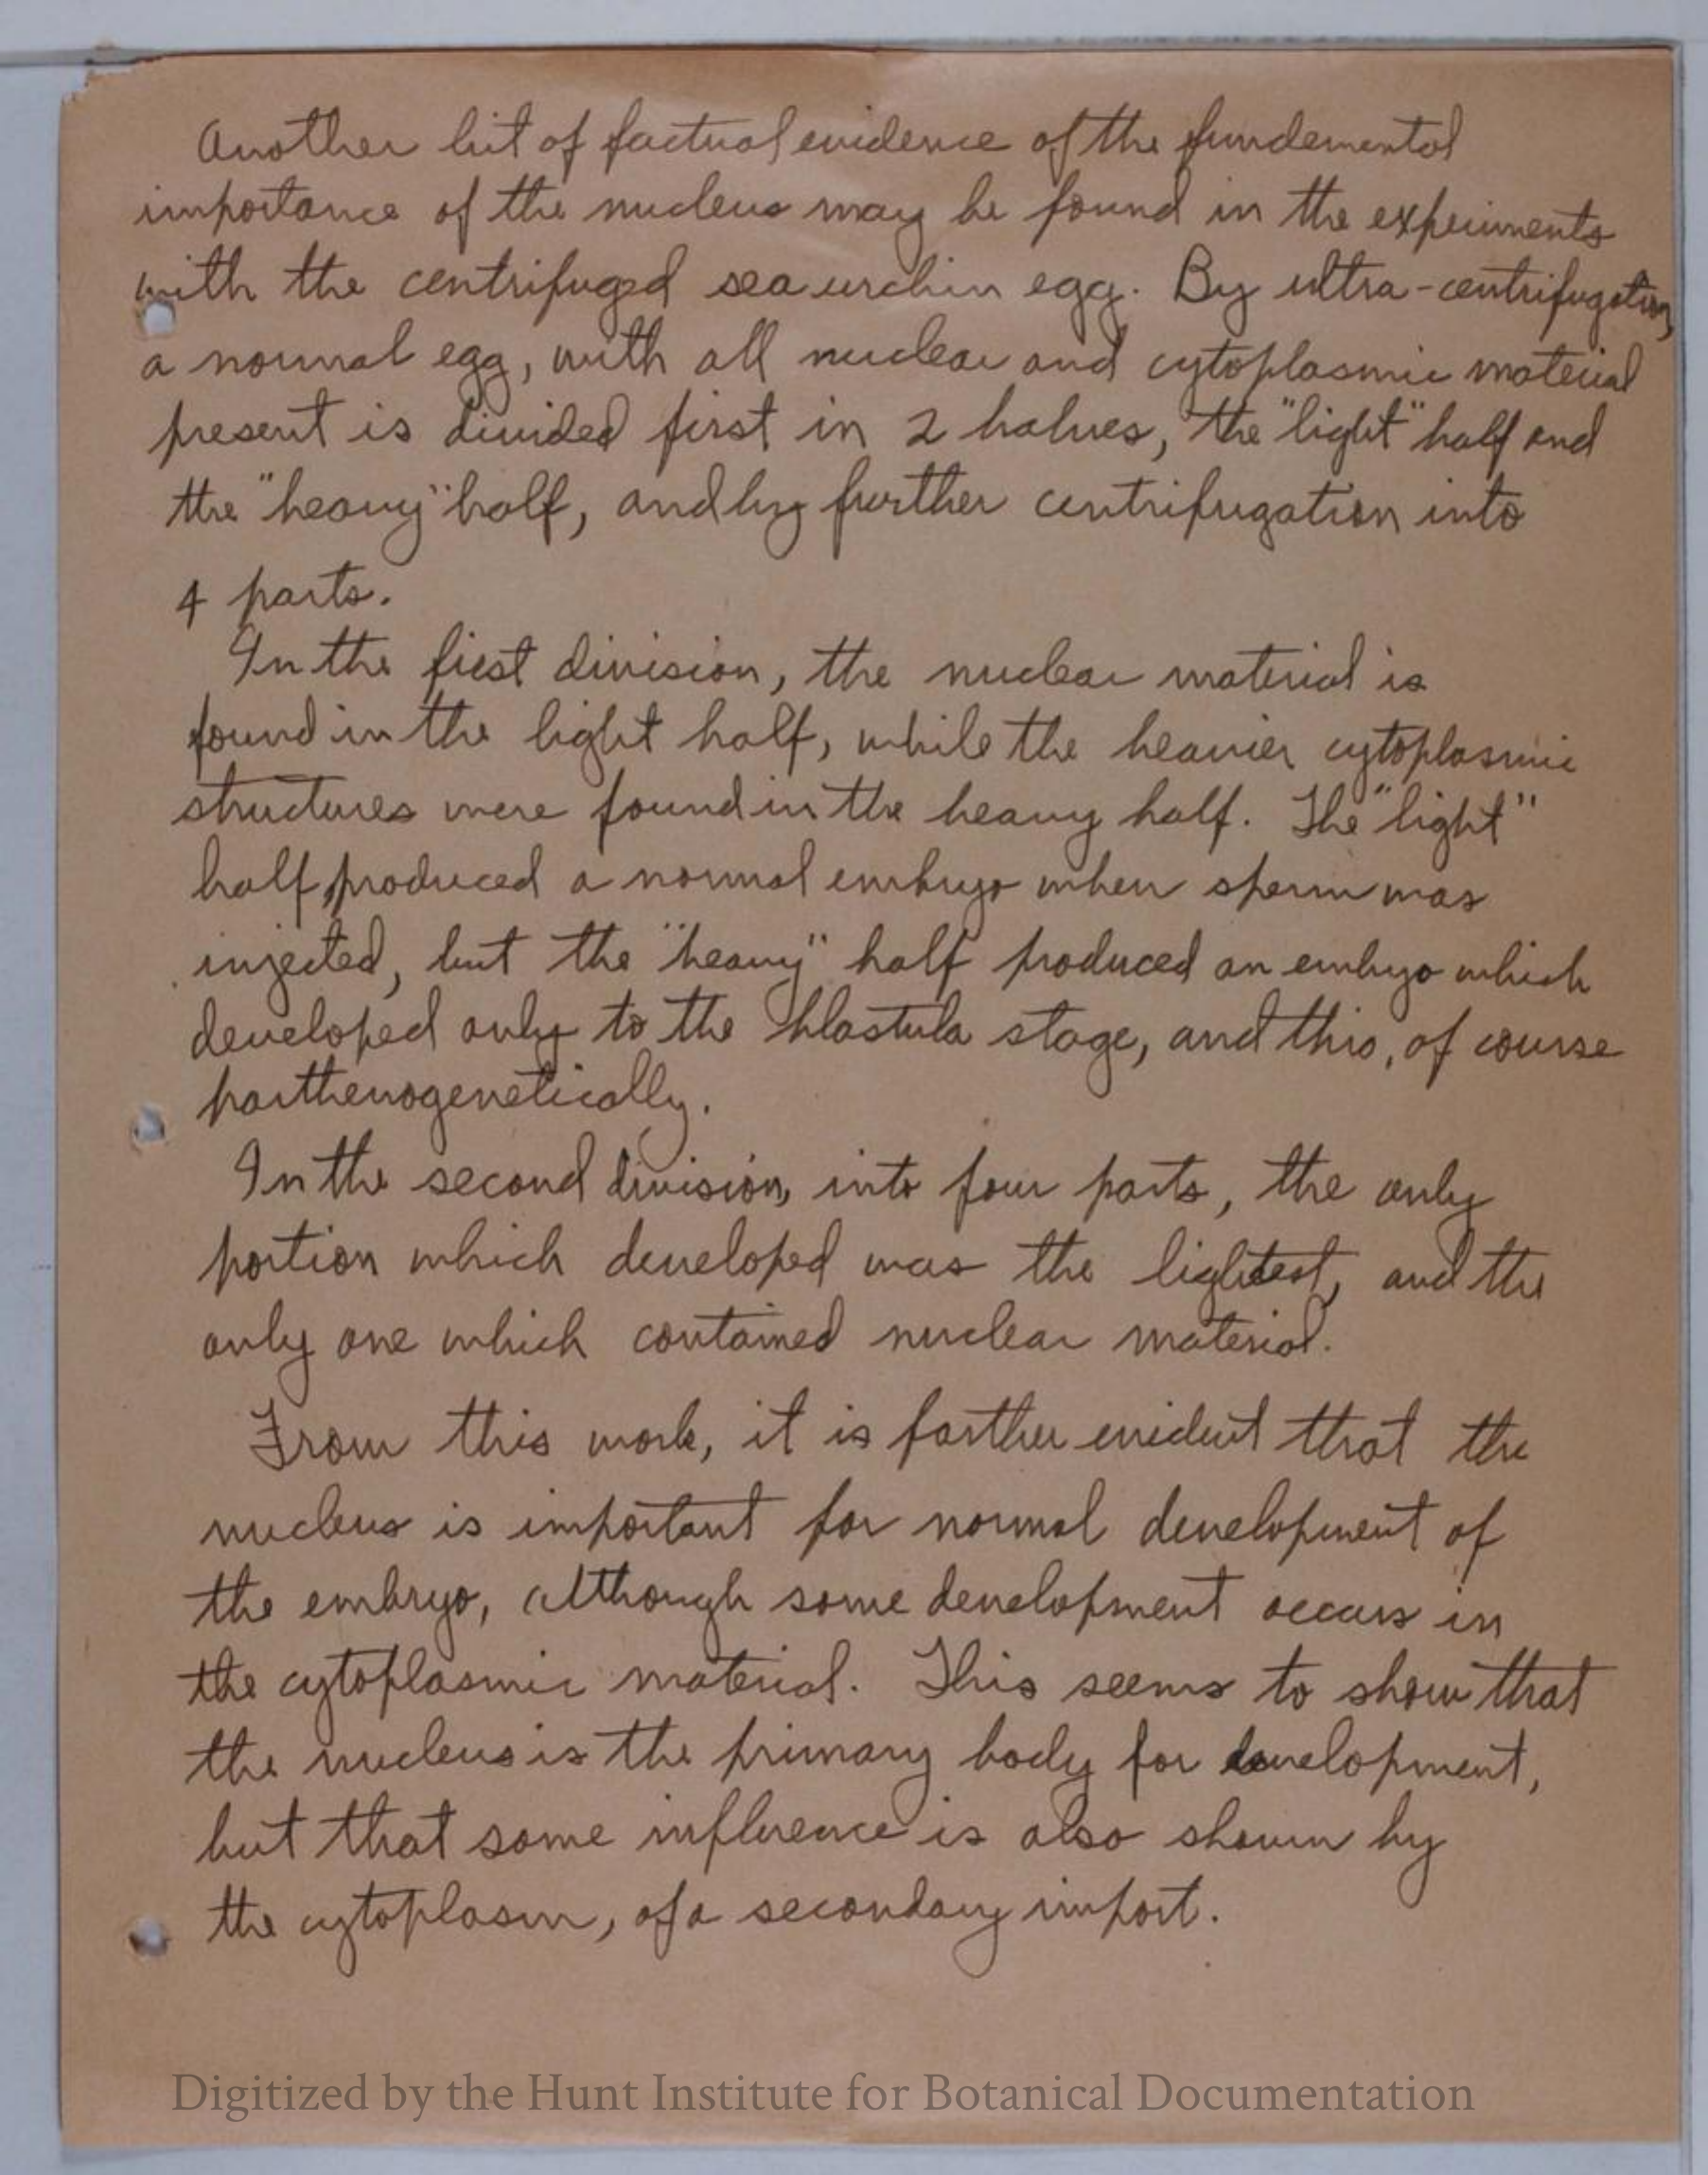 Another bit of factual evidence of the fundemental
importance of the nucleus may be found in the experiments
with the centrifuged sea urchin egg. By ultra-centrifugation,
a normal egg, with all nuclear and cytoplasmic material
present is divided first in 2 halves, the "light" half and
the "heavy" half, and by further centrifugation into
4 parts.
In the first division, the nuclear material is
found in the light half, while the heavier cytoplasmic
structures were found in the heavy half. The "light"
half produced a normal embryo when sperm was
injected, but the "heavy" half produced an embryo which
developed only to the blastula stage, and this, of course
parthenogenetically.
In the second division, into four parts, the only
portion which developed was the lightest, and the
only one which contained nuclear material.
From this work, it is farther evident that the
nucleus is important for normal development of
the embryo, although some development occurs in
the cytoplasmic material. This seems to show that
the nucleus is the primary body for development,
but that some influence is also shown by
the cytoplasm, of a secondary import.
Digitized by the Hunt Institute for Botanical Documentation